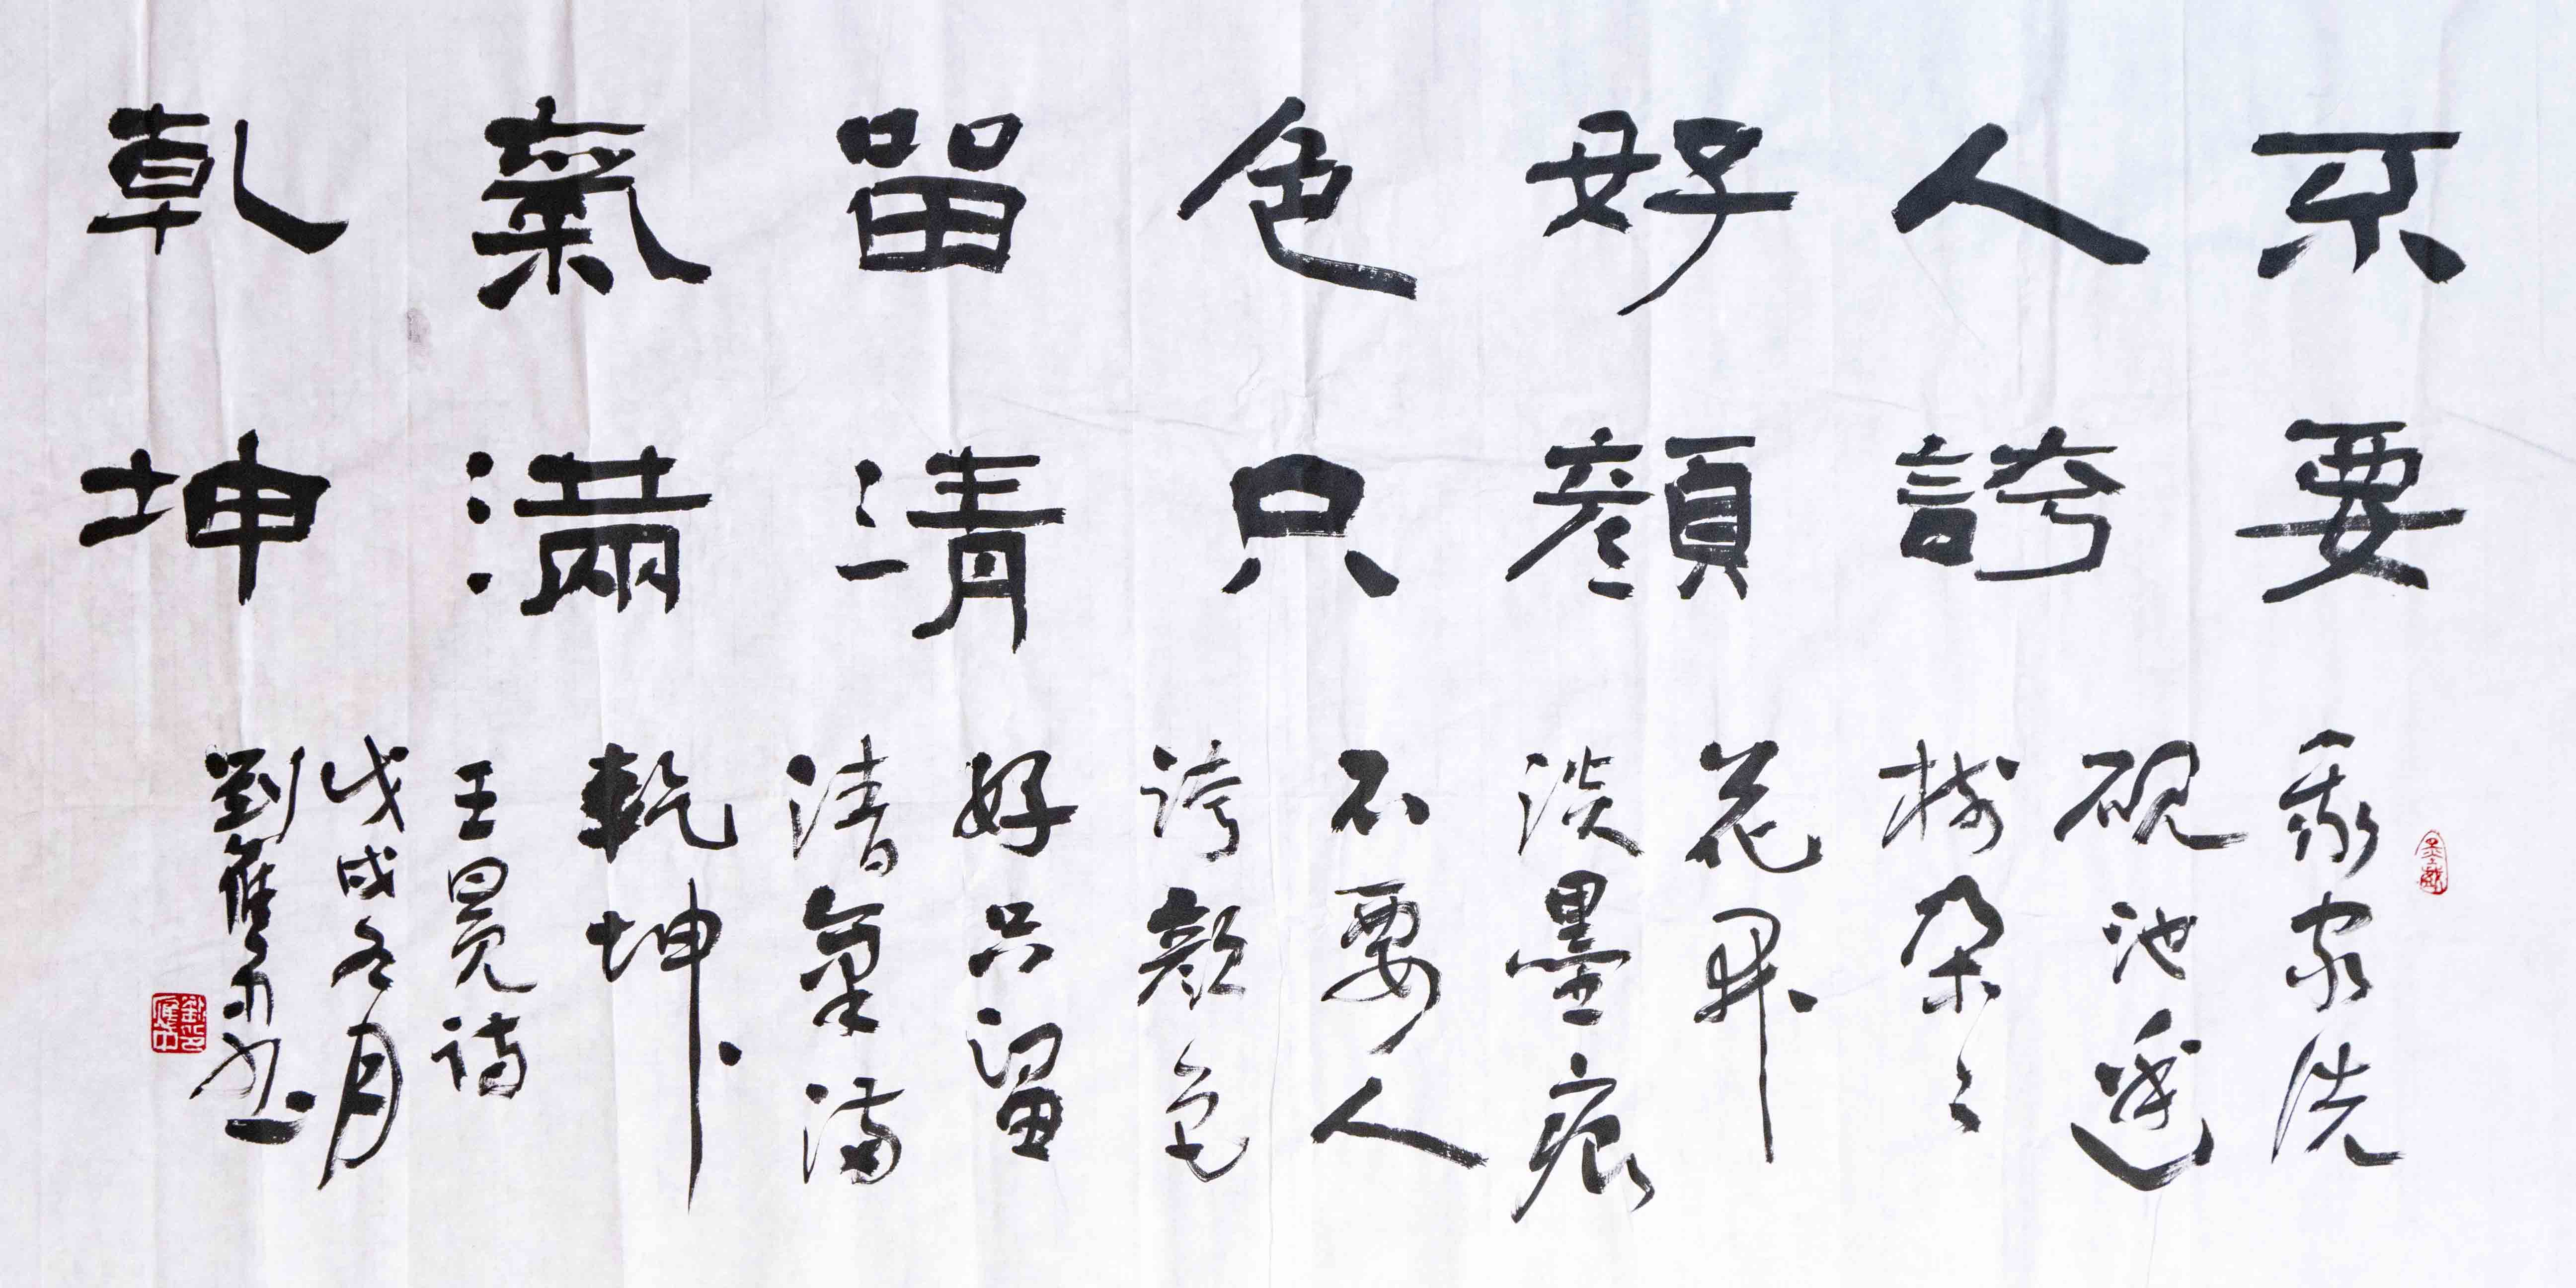 不要
人誇
好顏
色只
留清
氣滿
乾坤
我家洗
硯池邊
树朵々
花開
淡墨痕
不要人
誇顏色
好只留
清氣滿
乾坤
王冕詩
戊戌冬月
劉雁書